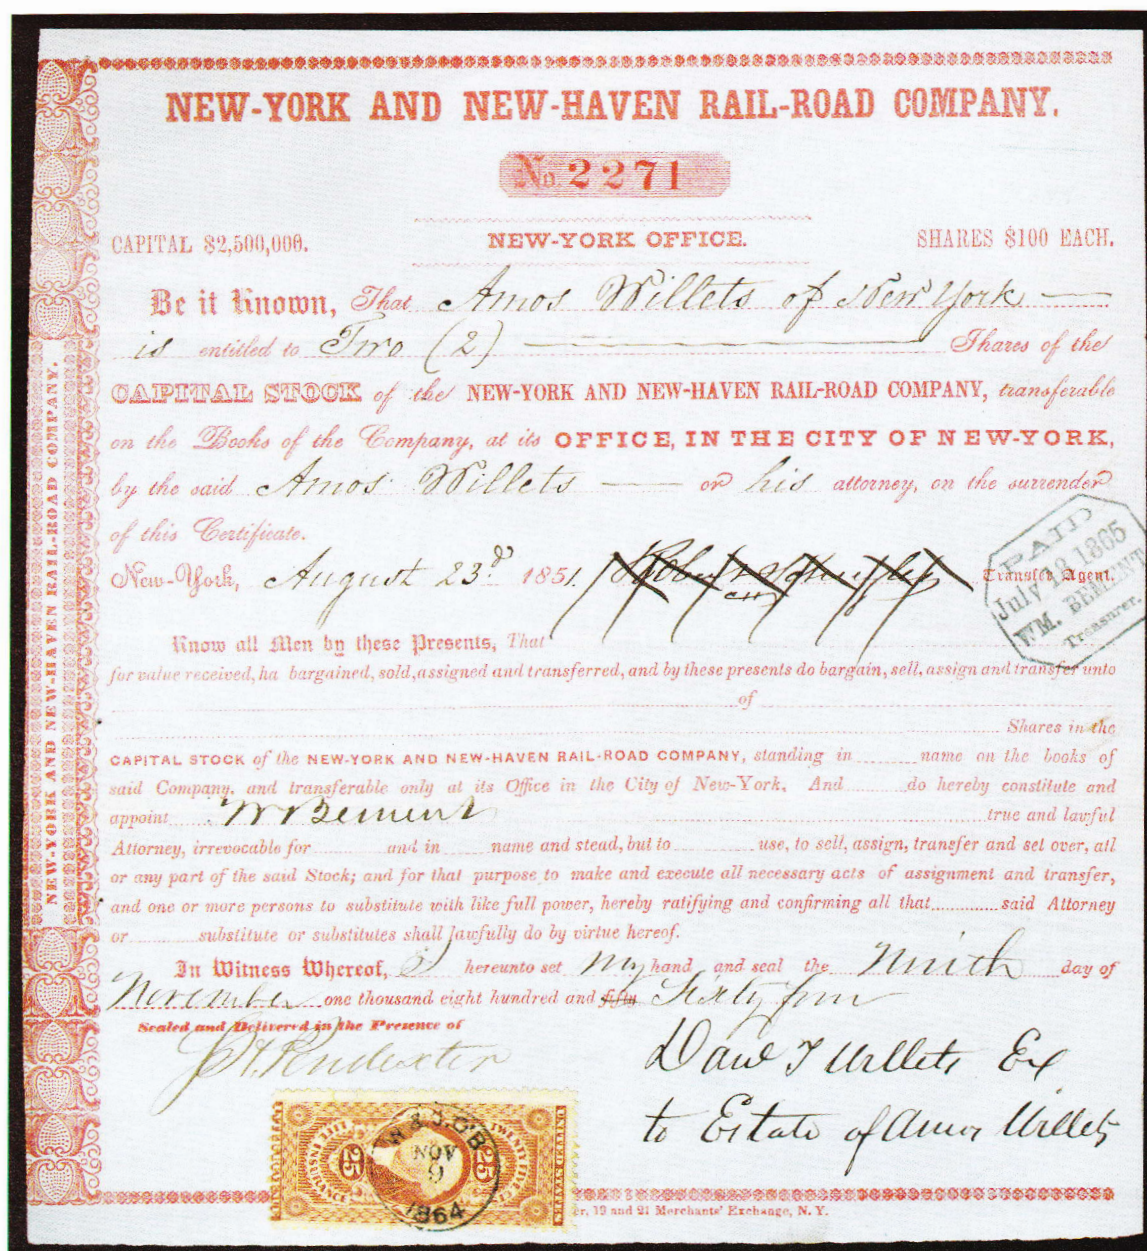 NEW-YORK AND NEW-HAVEN RAIL-ROAD COMPANY.
No. 2271
CAPITAL $2,500,000. NEW-YORK OFFICE. SHARES $100 EACH.
Be it Known, That Amos Willets of New York
is entitled to Two (2) Shares of the
CAPITAL STOCK of the NEW-YORK AND NEW-HAVEN RAIL-ROAD COMPANY, transferable
on the Books of the Company, at its OFFICE, IN THE CITY OF NEW-YORK,
by the said Amos Willets or his attorney, on the surrender
of this Certificate.
New-York, August 23d. 1851. Transfer Agent.
PAID
July 18 1865
WM. BEMENT
Treasurer.
Know all Men by these Presents, That
for value received, ha bargained, sold, assigned and transferred, and by these presents do bargain, sell, assign and transfer unto
of
Shares in the
CAPITAL STOCK of the NEW-YORK AND NEW-HAVEN RAIL-ROAD COMPANY, standing in name on the books of
said Company, and transferable only at its Office in the City of New-York. And do hereby constitute and
appoint W Bement true and lawful
Attorney, irrevocable for and in name and stead, but to use, to sell, assign, transfer and set over, all
or any part of the said Stock; and for that purpose to make and execute all necessary acts of assignment and transfer,
and one or more persons to substitute with like full power, hereby ratifying and confirming all that said Attorney
or substitute or substitutes shall lawfully do by virtue hereof.
In Witness Whereof, I hereunto set my hand and seal the Ninth day of
November one thousand eight hundred and fifty Sixty four
Sealed and Delivered in the Presence of
Dan'l T Willets Ex
to Estate of Amos Willets
NEW-YORK AND NEW-HAVEN RAIL-ROAD COMPANY.
25 LIFE INSURANCE TWENTY FIVE CTS. 25
UNITED STATES
NOV
9
1864
19 and 21 Merchants' Exchange, N. Y.